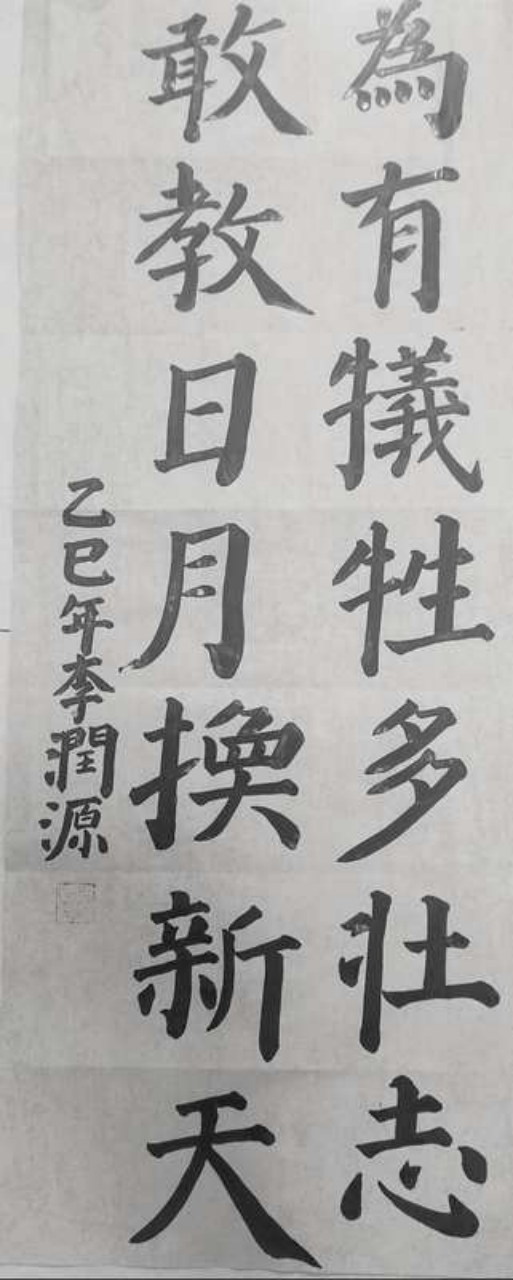 為有犠牲多壯志
敢教日月換新天
乙巳年李潤源